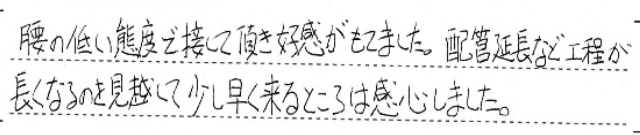 腰の低い態度で接して頂き好感がもてました。配管延長など工程が
長くなるのを見越して少し早く来るところは感心しました。